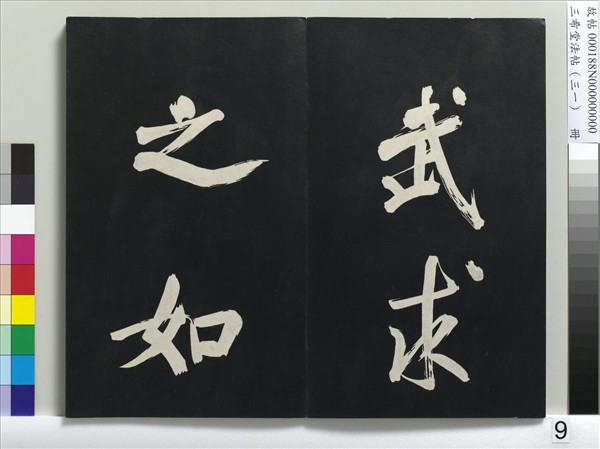 武求
之如
故帖 000188N000000000
三希堂法帖（三一） 冊
9